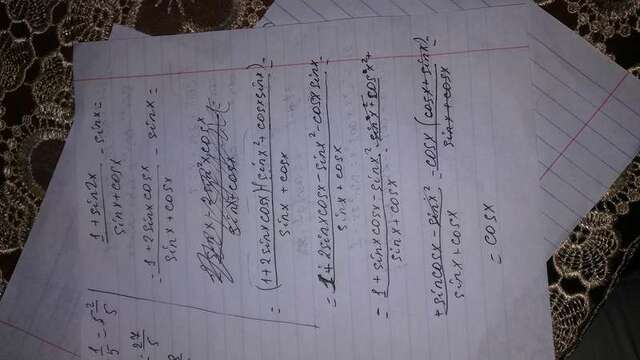 1/5 = 5 2/5
27/5
(1 + sin2x)/(sinx + cosx) - sinx =
= (1 + 2sinx cosx)/(sinx + cosx) - sinx =
= ((1 + 2sinx cosx) - (sinx² + cosx sinx))/(sinx + cosx) =
= (1 + 2sinx cosx - sinx² - cosx sinx)/(sinx + cosx) =
= (1 + sinx cosx - sinx²)/(sinx + cosx) = sin²x² + cos²x² +
+ sin cosx - sinx²/(sinx + cosx) = cosx (cosx + sinx)/(sinx + cosx) =
= cosx